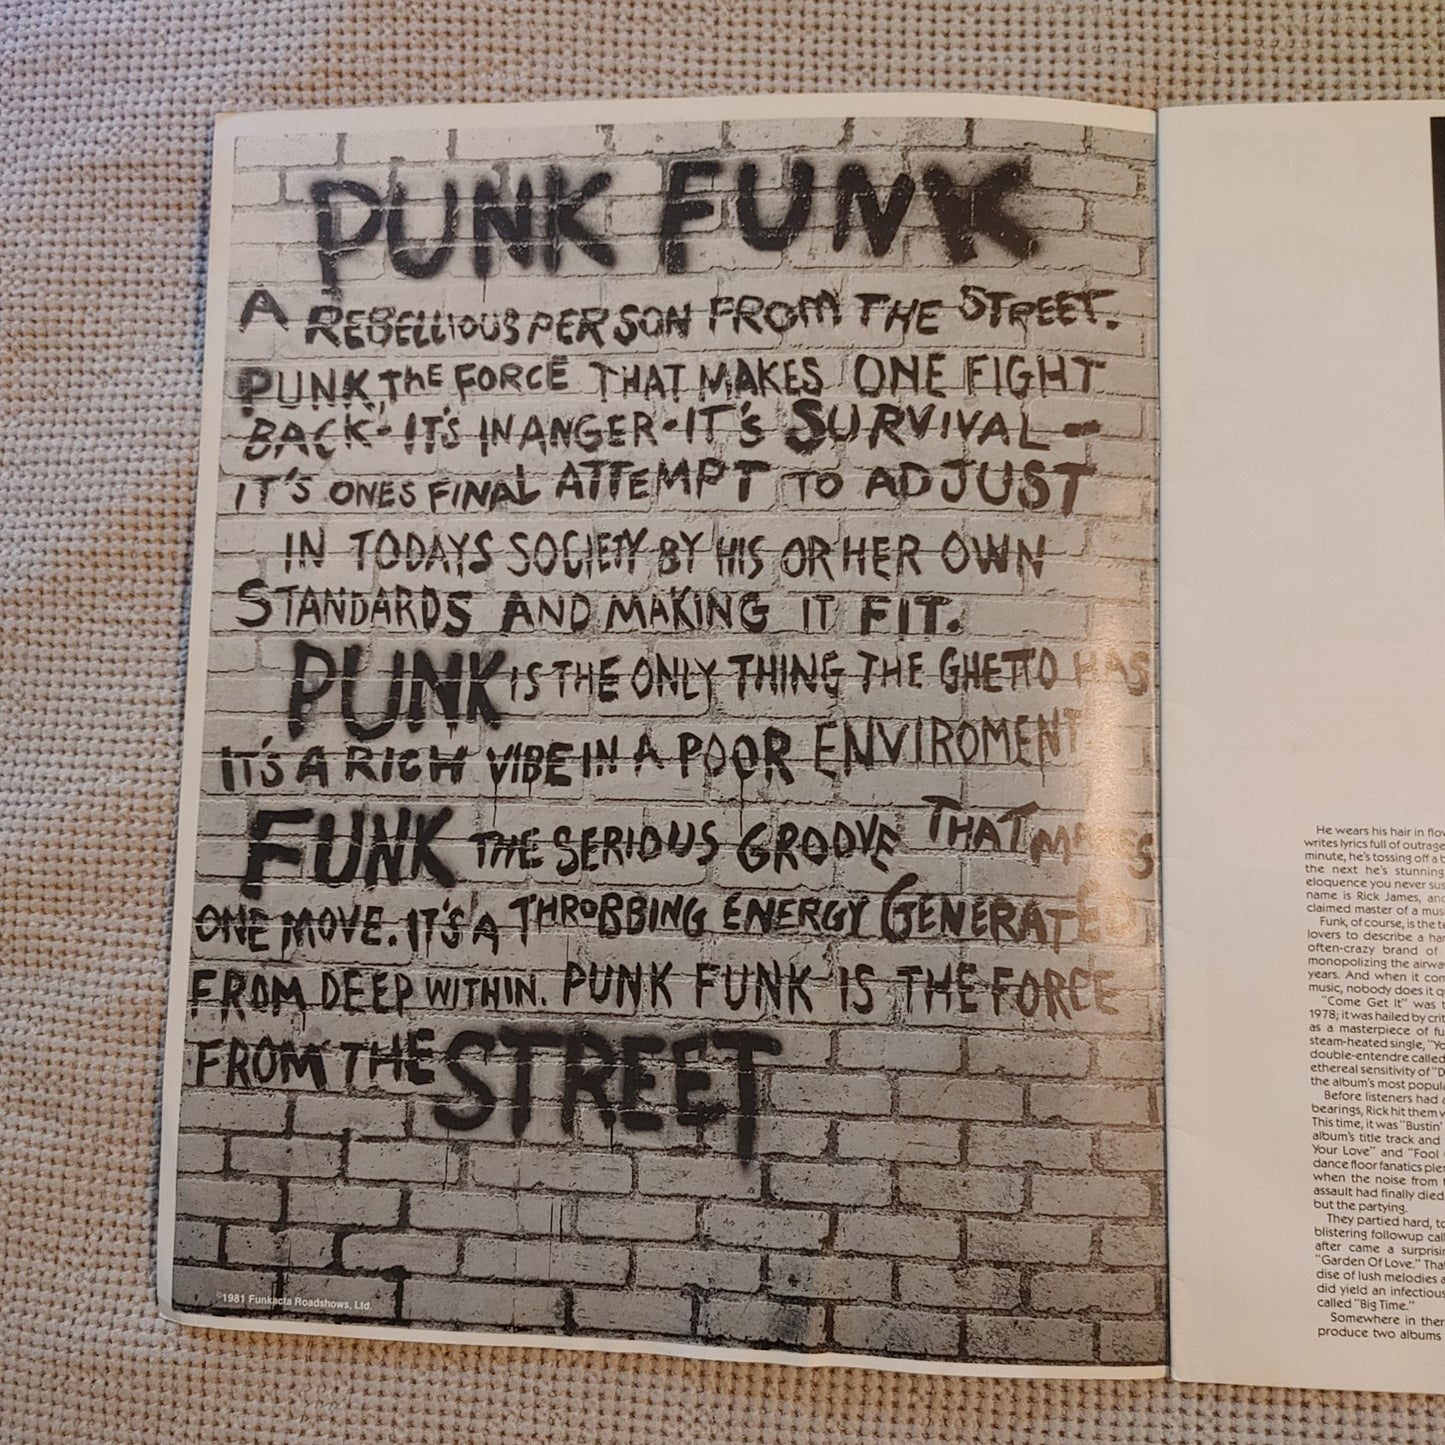 PUNK FUNK
A REBELLIOUS PERSON FROM THE STREET.
PUNK, THE FORCE THAT MAKES ONE FIGHT
BACK - IT'S IN ANGER - IT'S SURVIVAL -
IT'S ONES FINAL ATTEMPT TO ADJUST
IN TODAYS SOCIETY BY HIS OR HER OWN
STANDARDS AND MAKING IT FIT.
PUNK IS THE ONLY THING THE GHETTO HAS
IT'S A RICH VIBE IN A POOR ENVIROMENT
FUNK THE SERIOUS GROOVE THAT MAKES
ONE MOVE. IT'S A THROBBING ENERGY GENERATED
FROM DEEP WITHIN. PUNK FUNK IS THE FORCE
FROM THE STREET
©1981 Funkacta Roadshows, Ltd.
He wears his hair in
writes lyrics full of
minute, he's tossing off a
the next he's stunning
eloquence you never
name is Rick James,
claimed master of a
Funk, of course, is the
lovers to describe a
often-crazy brand of
monopolizing the
years. And when it
music, nobody does it
"Come Get It" was
1978; it was hailed by
as a masterpiece of
steam-heated single,
double-entendre called
ethereal sensitivity of
the album's most
Before listeners had
bearings, Rick hit them
This time, it was "Bustin'
album's title track and
Your Love" and "Fool
dance floor fanatics
when the noise from
assault had finally died
but the partying.
They partied hard,
blistering followup
after came a
"Garden Of Love."
dise of lush melodies
did yield an infectious
called "Big Time."
Somewhere in
produce two albums